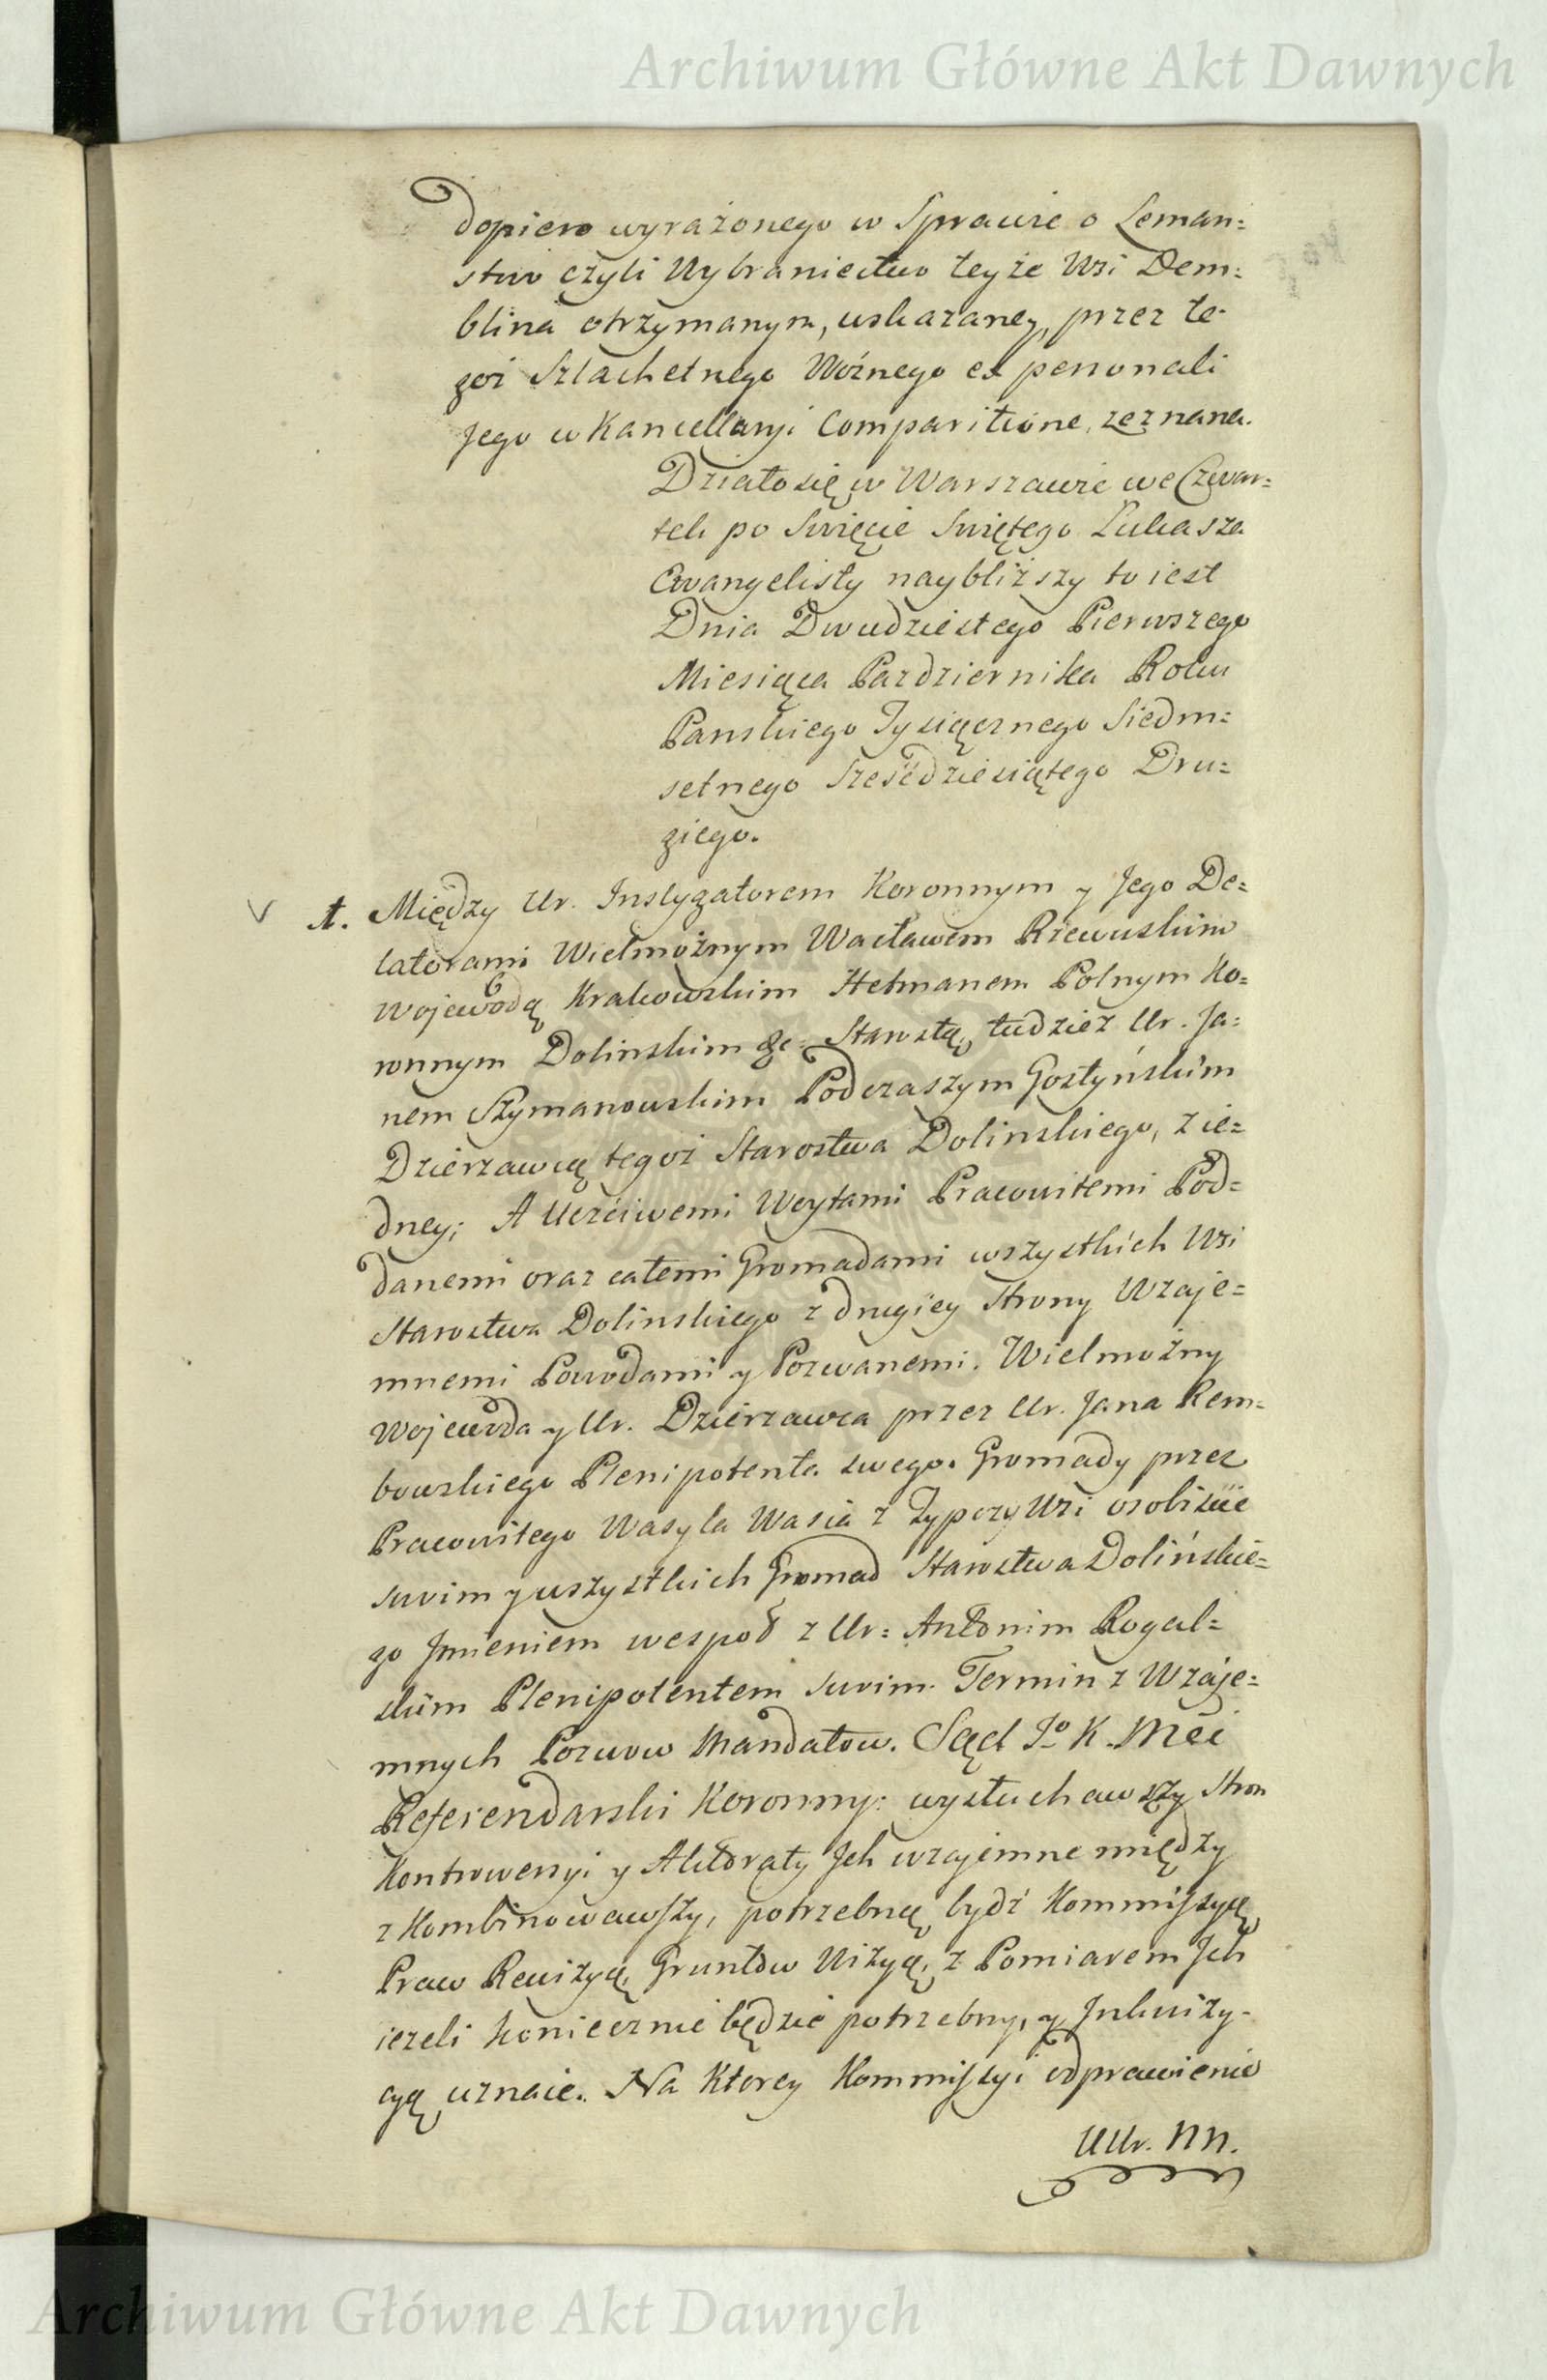 Archiwum Główne Akt Dawnych
dopiero wyrażonego w Sprawie o Leman=
stwo czyli Wybraniectwo teyże Wsi Dem=
blina otrzymanym, wskazaney, przez te-
goż Szlachetnego Woźnego ex personali
Jego w Kancellaryi Comparitione, zeznana.
Działo się w Warszawie we Czwar=
tek po Swięcie Swiętego Lukasza
Ewangelisty naybliższy to iest
Dnia Dwudziestego Pierwszego
Miesiąca Pazdziernika Roku
Panskiego Tysiącznego Siedm=
setnego Sześćdziesiątego Dru=
giego.
Między Ur. Instygatorem Koronnym y Jego De=
latorami Wielmożnym Wacławem Rzewuskim
Wojewodą Krakowskim Hetmanem Polnym Ko=
ronnym Dolinskim &c: Starostą, tudzież Ur. Ja=
nem Szymanowskim Podczaszym Gostyńskim
Dzierzawcą tegoż Starostwa Dolinskiego, z ie=
dney; A Uczciwemi Woytami Pracowitemi Pod=
danemi oraz całemi Gromadami wszystkich Wsi
Starostwa Dolinskiego z drugiey Strony Wzaje=
mnemi Powodami y Pozwanemi. Wielmożny
Wojewoda y Ur. Dzierzawca przez Ur. Jana Rem=
bowskiego Plenipotenta swego. Gromady przez
Pracowitego Wasyla Wasia z Typczy Wsi osobiście
swoim y wszystkich Gromad Starostwa Dolińskie=
go Jmieniem wespoł z Ur= Antonim Rogal=
skim Plenipotentem swoim. Termin z Wzaje=
mnych Pozwow Mandatow. Sąd Jo K. Mći
Referendarski Koronny: wysłuchawszy Stron
Kontrowersyi y Aktoraty Jch wzajemne między
z Kombinowawszy, potrzebną bydź Kommissyą,
Praw Rewizyą, Gruntow Wizyą, z Pomiarem Jch
ieżeli koniecznie będzie potrzebny, y Jnkwizy-
cyą uznaie. Na Ktorey Kommissyi odprawienie
UUr. NN.
Archiwum Główne Akt Dawnych